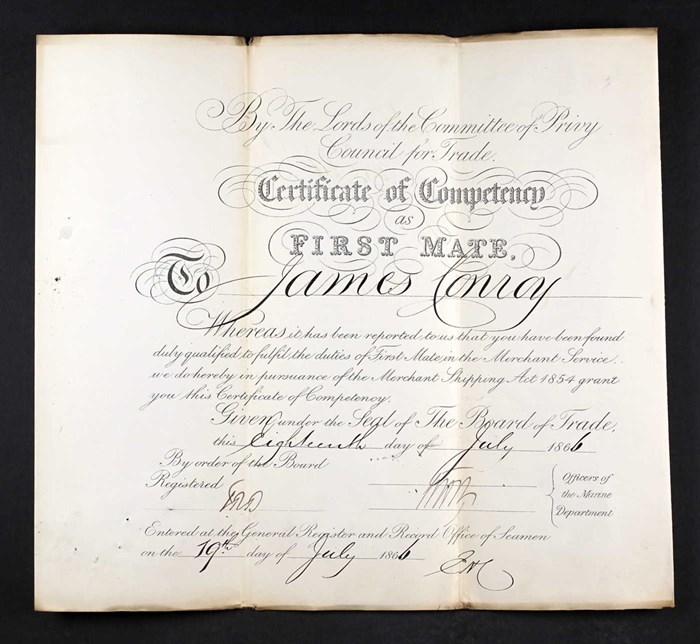 By The Lords of the Committee of Privy
Council for Trade.
Certificate of Competency
as
FIRST MATE.
To James Conroy
Whereas it has been reported to us that you have been found
duly qualified to fulfil the duties of First Mate in the Merchant Service.
we do hereby in pursuance of the Merchant Shipping Act 1854 grant
you this Certificate of Competency.
Given under the Seal of The Board of Trade.
this Eighteenth day of July 1866
By order of the Board
Registered
Officers of
the Marine
Department
Entered at the General Register and Record Office of Seamen
on the 19th day of July 1866